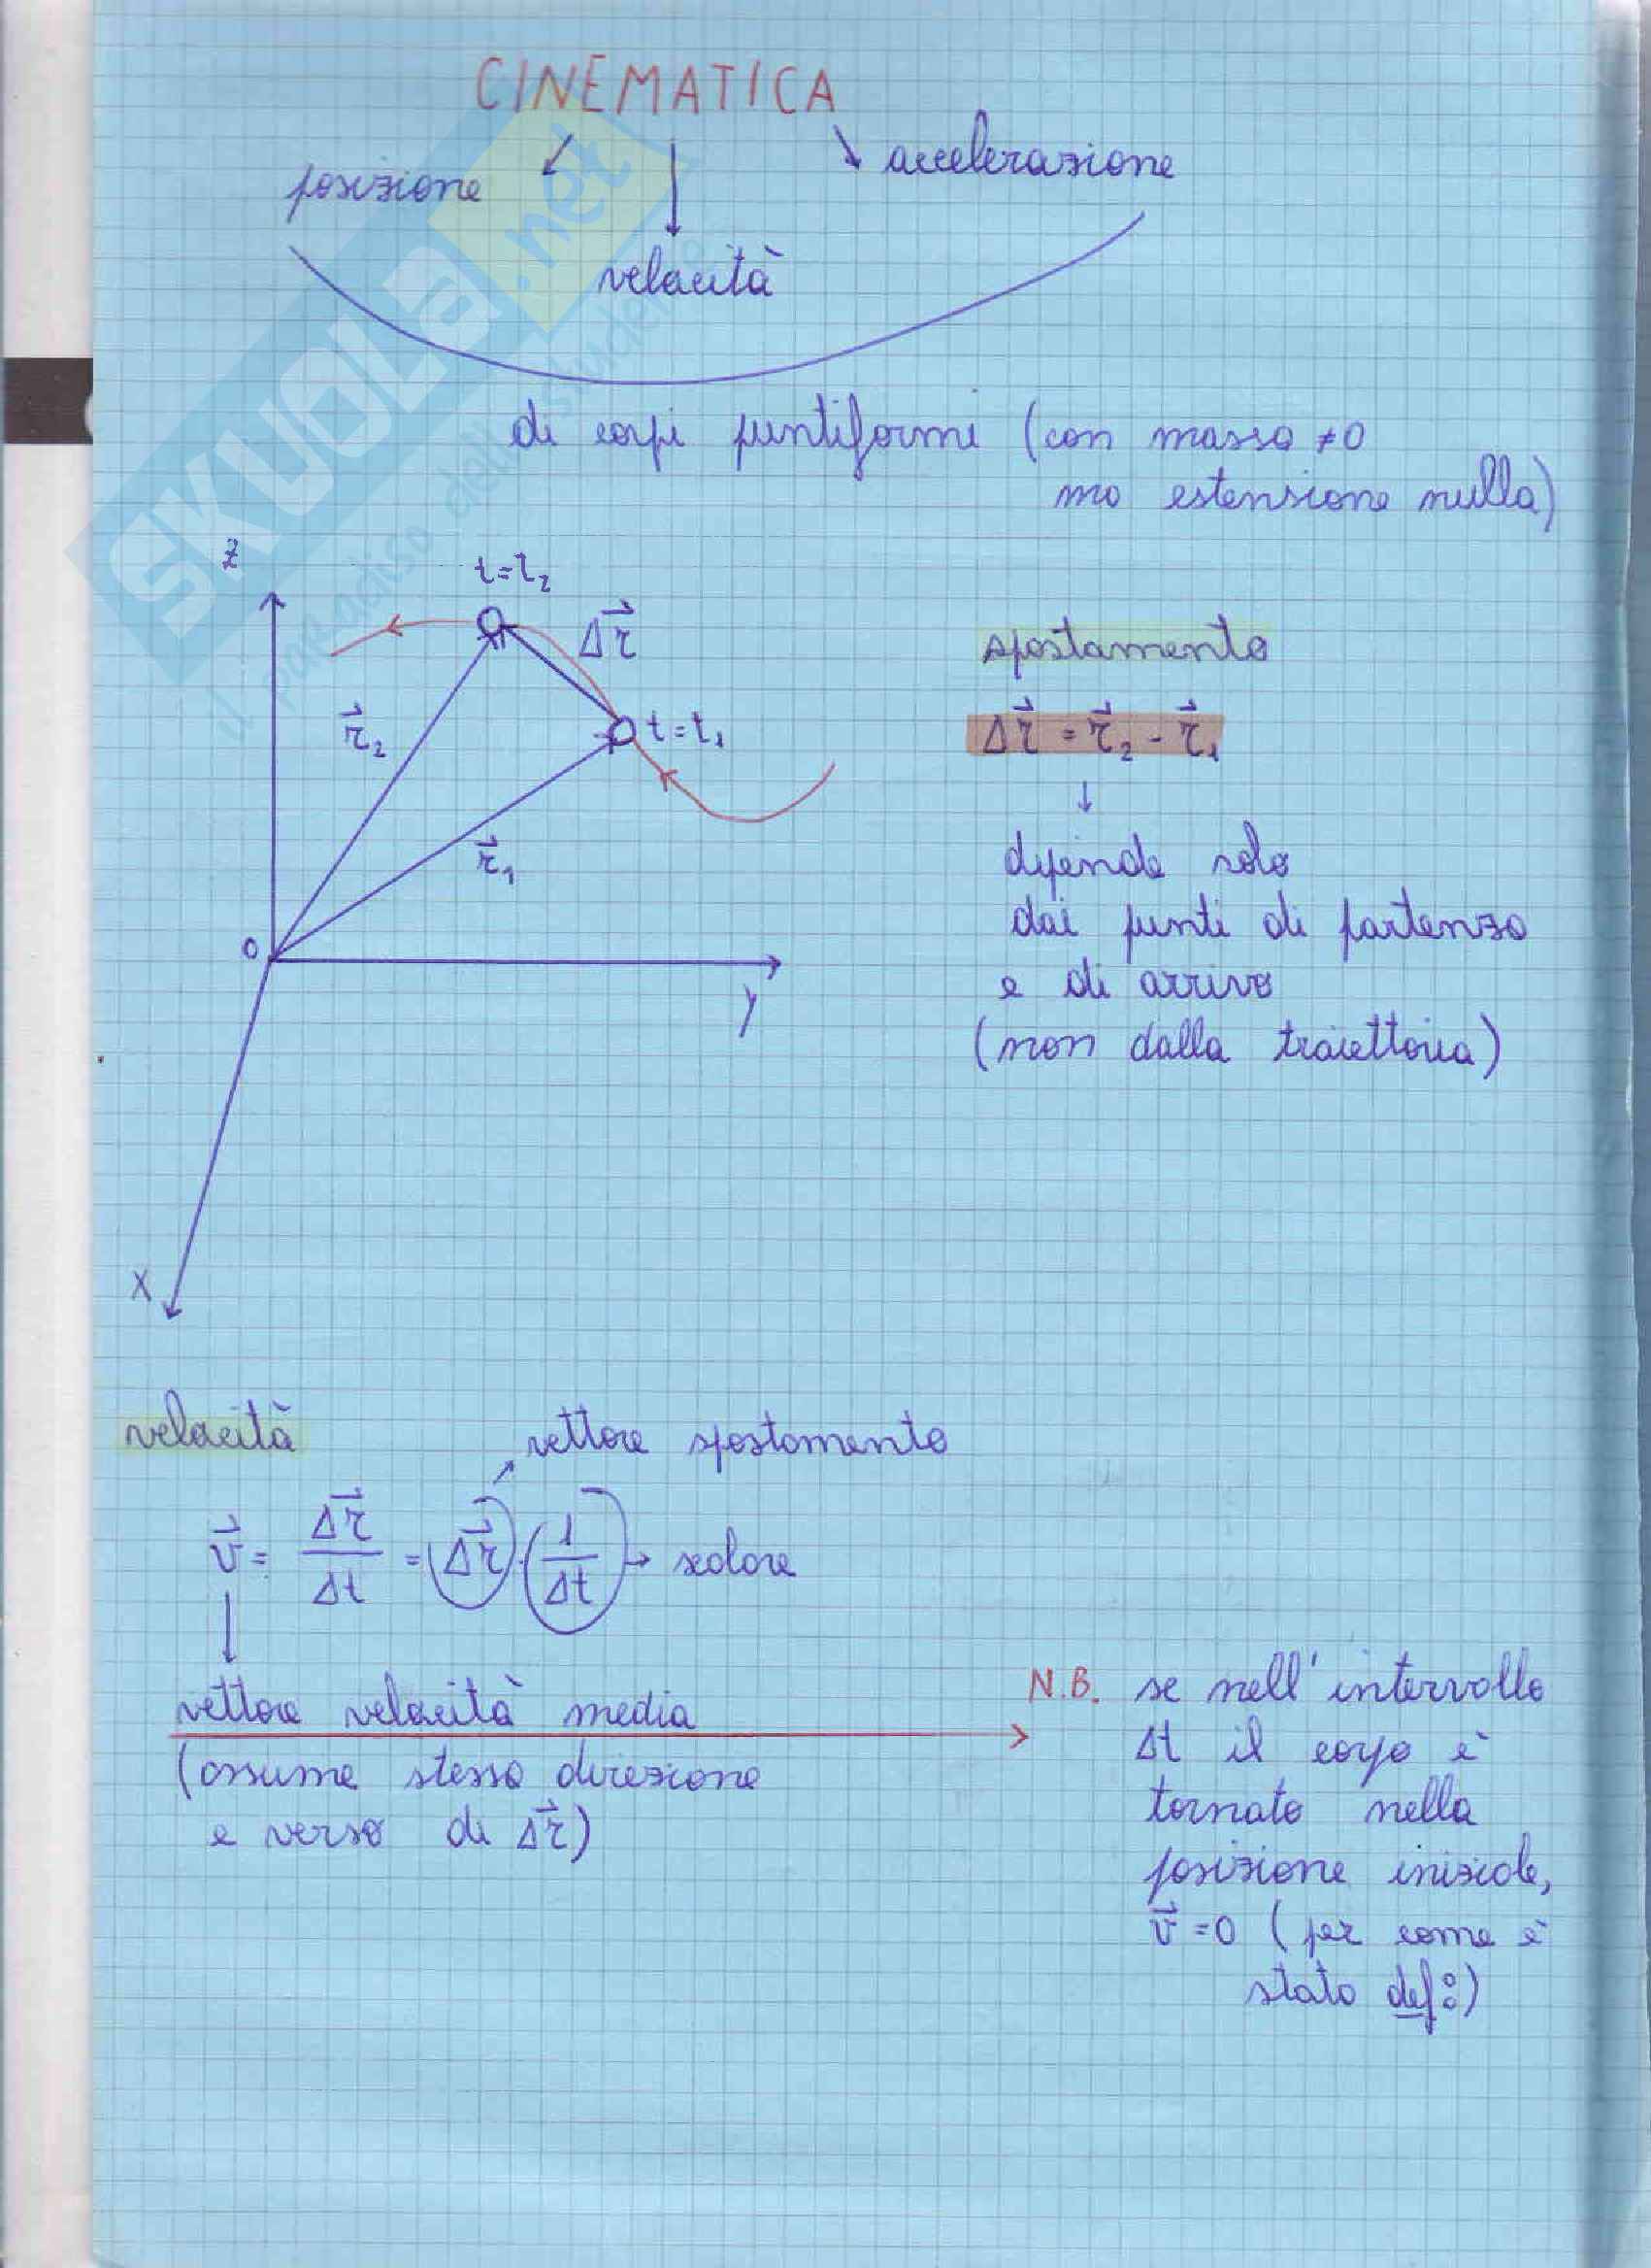 CINEMATICA
posizione
accelerazione
velocità
di corpi puntiformi (con massa ≠0
ma estensione nulla)
z
t=t₂
Δr⃗
r⃗₂
t=t₁
r⃗₁
0
y
x
spostamento
Δr⃗ = r⃗₂ - r⃗₁
↓
dipende solo
dai punti di partenza
e di arrivo
(non dalla traiettoria)
velocità
vettore spostamento
v⃗ = Δr⃗/Δt = (Δr⃗)·(1/Δt) → scalare
vettore velocità media
(assume stessa direzione
e verso di Δr⃗)
N.B. se nell'intervallo
Δt il corpo è
tornato nella
posizione iniziale,
v⃗ =0 (per come è
stata def:)
SKUOLA.net
il paradiso dello studente